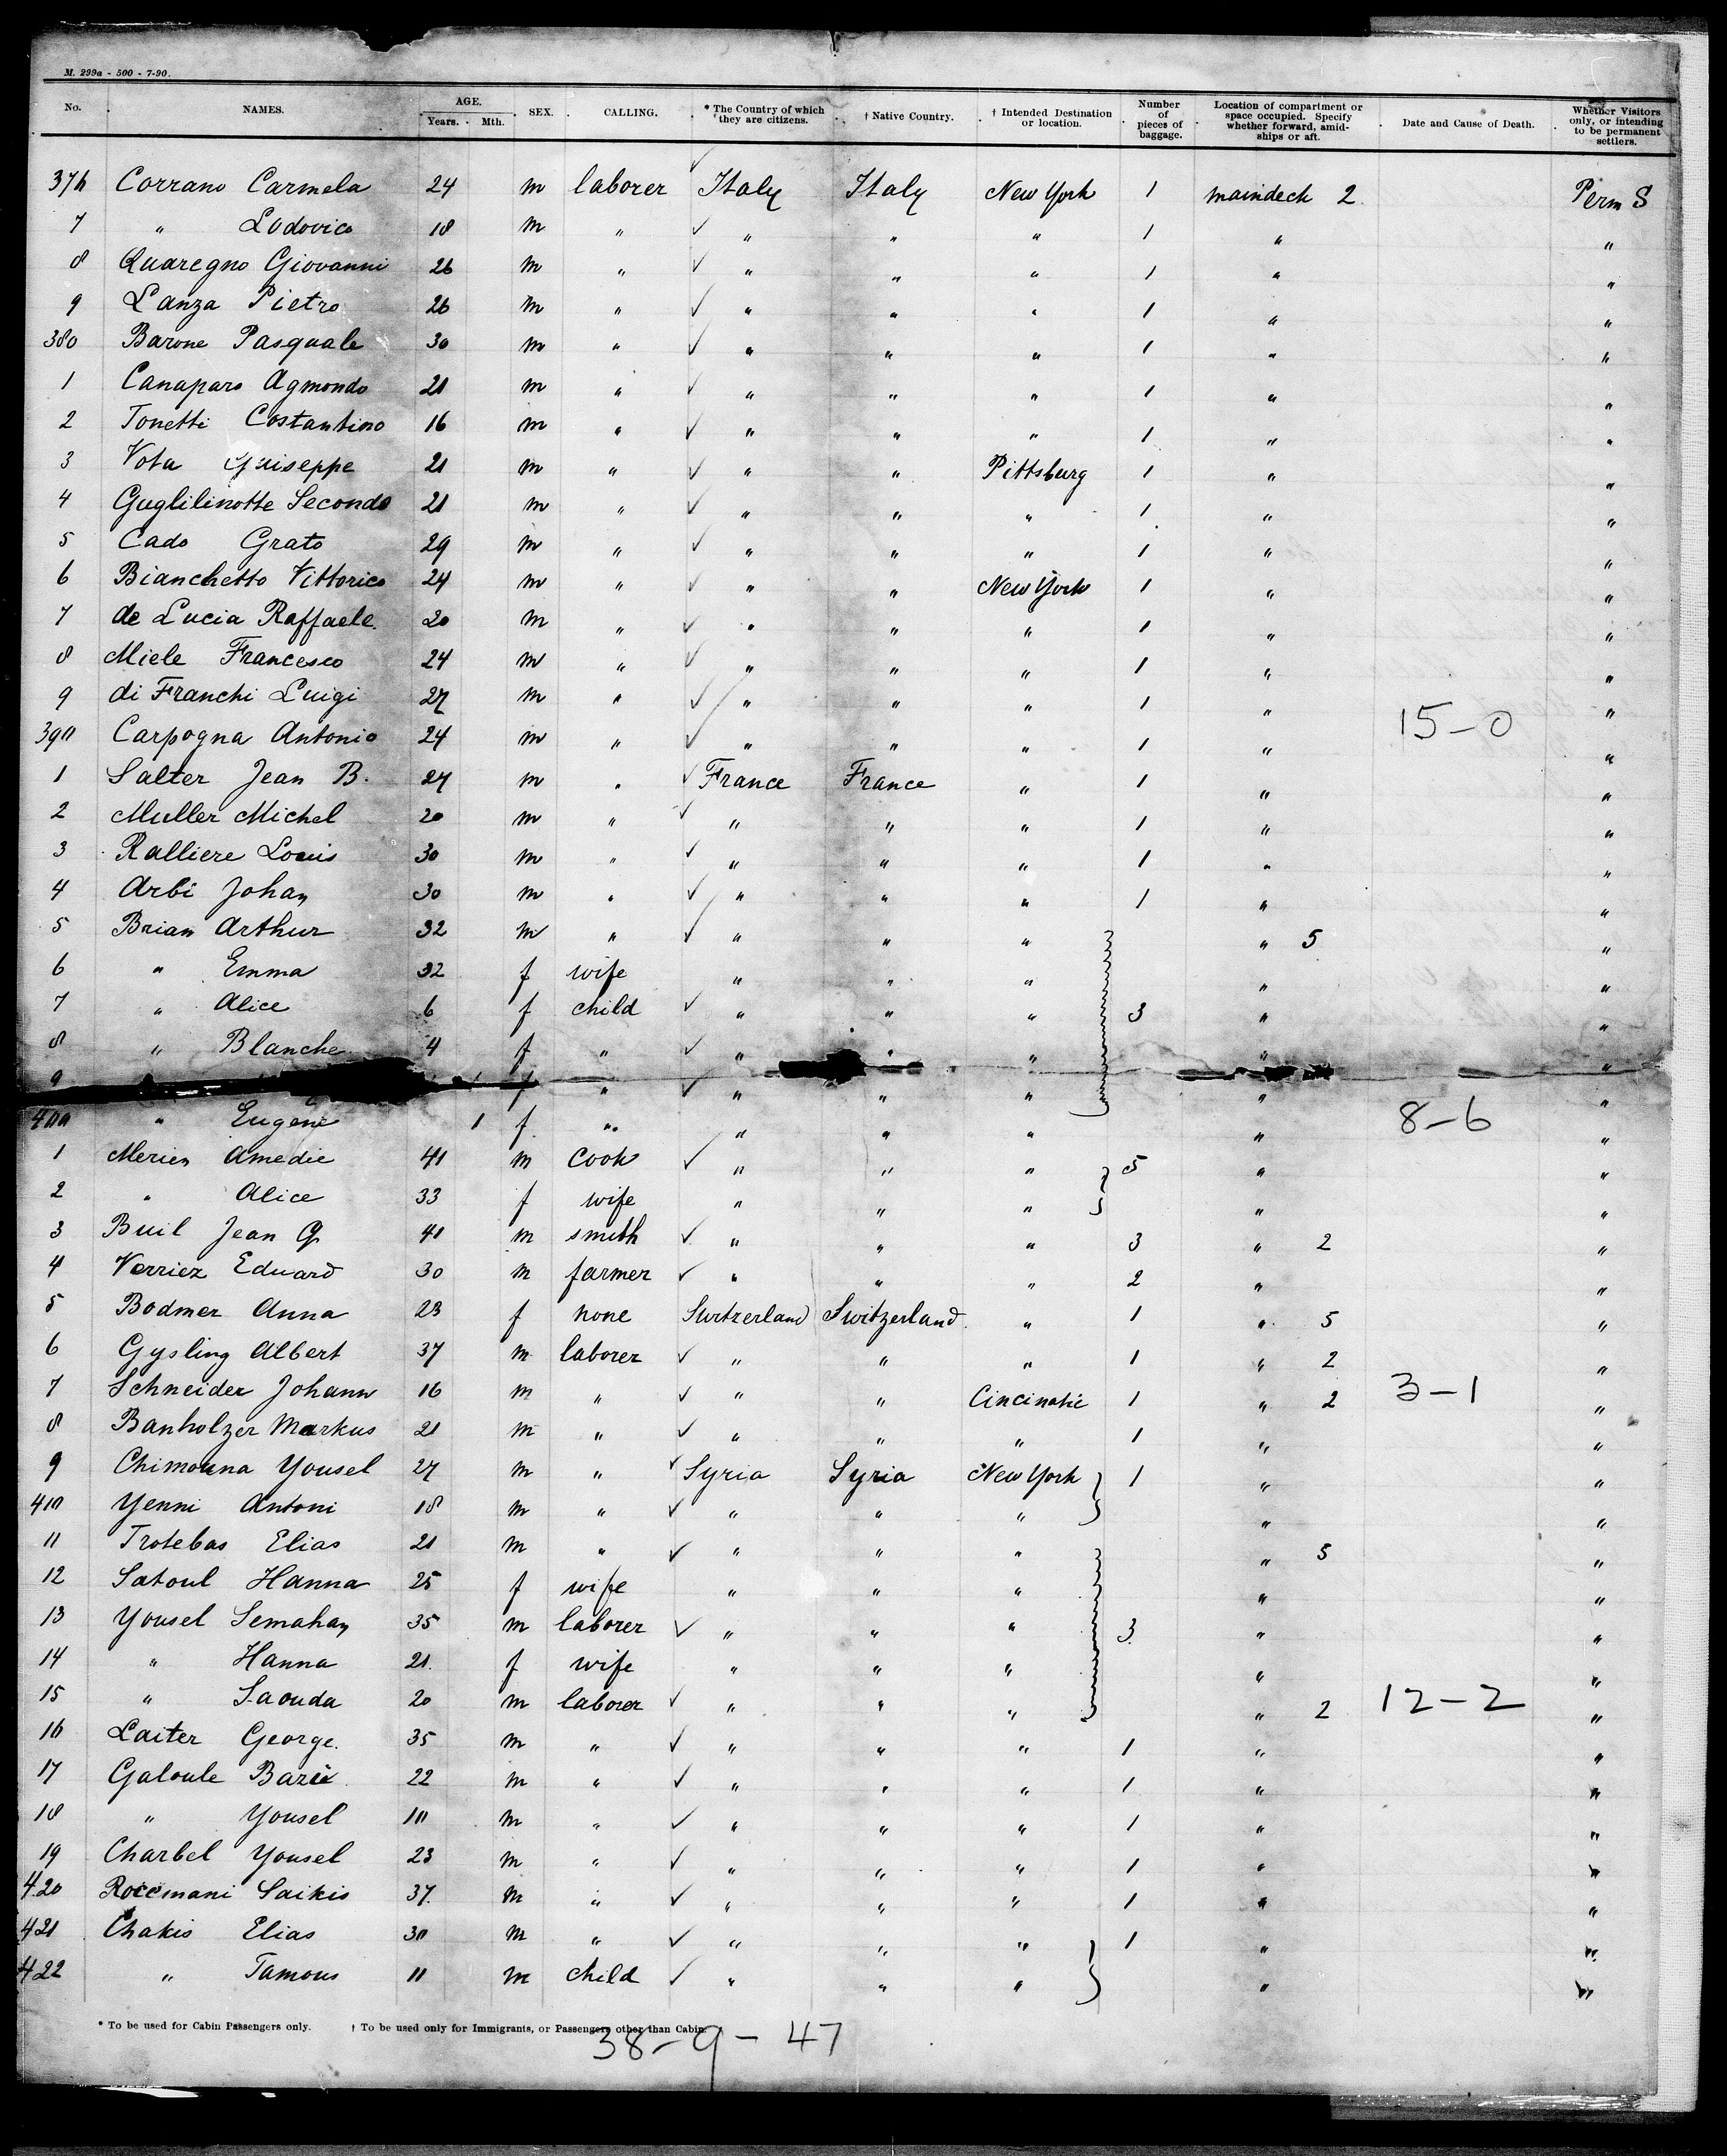 M. 299a - 500 - 7-90.
No. NAMES. AGE. Years. Mth. SEX. CALLING. * The Country of which they are citizens. † Native Country. † Intended Destination or location. Number of pieces of baggage. Location of compartment or space occupied. Specify whether forward, amidships or aft. Date and Cause of Death. Whether Visitors only, or intending to be permanent settlers.
376 Corrano Carmela 24 m laborer Italy Italy New York 1 maindeck 2 Perm S
7 " Lodovico 18 m " ✓ " " " 1 " "
8 Quaregno Giovanni 26 m " ✓ " " " 1 " "
9 Lanza Pietro 26 m " ✓ " " " 1 " "
380 Barone Pasquale 30 m " ✓ " " " 1 " "
1 Canaparo Agmondo 21 m " ✓ " " " 1 " "
2 Tonetti Costantino 16 m " ✓ " " " 1 " "
3 Vota Guiseppe 21 m " ✓ " " Pittsburg 1 " "
4 Guglilinotte Secondo 21 m " ✓ " " " 1 " "
5 Cado Grato 29 m " ✓ " " " 1 " "
6 Bianchetto Vittorico 24 m " ✓ " " New York 1 " "
7 de Lucia Raffaele 20 m " ✓ " " " 1 " "
8 Miele Francesco 24 m " ✓ " " " 1 " "
9 di Franchi Luigi 27 m " ✓ " " " 1 " "
390 Carpogna Antonio 24 m " ✓ " " " 1 " 15-0 "
1 Salter Jean B. 27 m " ✓ France France " 1 " "
2 Muller Michel 20 m " ✓ " " " 1 " "
3 Ralliere Louis 30 m " ✓ " " " 1 " "
4 Arbi Johan 30 m " ✓ " " " 1 " "
5 Brian Arthur 32 m " ✓ " " " " 5 "
6 " Emma 32 f wife " " " " "
7 " Alice 6 f child ✓ " " " 3 " "
8 " Blanche 4 f " ✓ " " " " "
9 f " ✓ " " " " "
400 " Eugene 1 f " " " " " 8-6 "
1 Merien Amedie 41 m cook ✓ " " " 5 " "
2 " Alice 33 f wife " " " " "
3 Buil Jean G 41 m smith ✓ " " " 3 " 2 "
4 Verriez Eduard 30 m farmer ✓ " " " 2 " "
5 Bodmer Anna 23 f none Switzerland Switzerland " 1 " 5 "
6 Gysling Albert 37 m laborer ✓ " " " 1 " 2 "
7 Schneider Johann 16 m " ✓ " " Cincinatie 1 " 2 3-1 "
8 Banholzer Markus 21 m " ✓ " " " 1 " "
9 Chimouna Yousel 27 m " ✓ Syria Syria New York 1 " "
410 Yenni Antoni 18 m " ✓ " " " " "
11 Trotebas Elias 21 m " ✓ " " " " 5 "
12 Satoul Hanna 25 f wife " " " " "
13 Yousel Semahan 35 m laborer ✓ " " " 3 " "
14 " Hanna 21 f wife " " " " "
15 " Saouda 20 m laborer ✓ " " " " 2 12-2 "
16 Laiter George 35 m " ✓ " " " 1 " "
17 Galoule Bazie 22 m " ✓ " " " 1 " "
18 " Yousel 10 m " ✓ " " " 1 " "
19 Charbel Yousel 23 m " ✓ " " " 1 " "
420 Roccmani Saikis 37 m " ✓ " " " 1 " "
421 Chakis Elias 30 m " ✓ " " " 1 " "
422 " Tamous 11 m child ✓ " " " " "
* To be used for Cabin Passengers only. † To be used only for Immigrants, or Passengers other than Cabin.
38-9-47